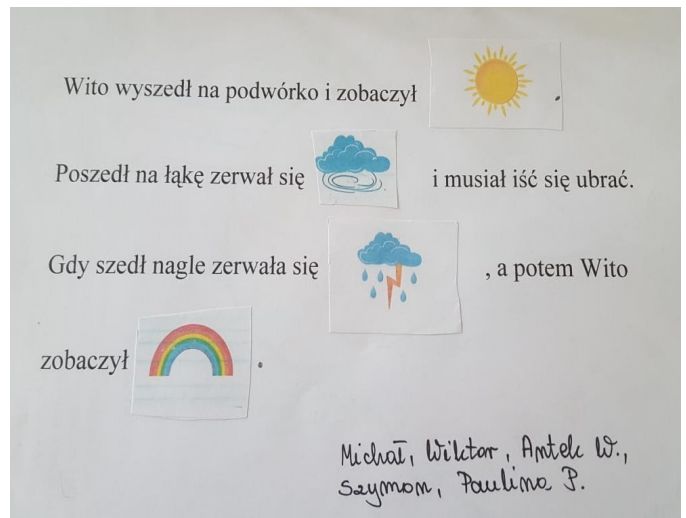 Wito wyszedł na podwórko i zobaczył .
Poszedł na łąkę zerwał się i musiał iść się ubrać.
Gdy szedł nagle zerwała się , a potem Wito
zobaczył .
Michał, Wiktor, Antek W.,
Szymon, Paulina P.